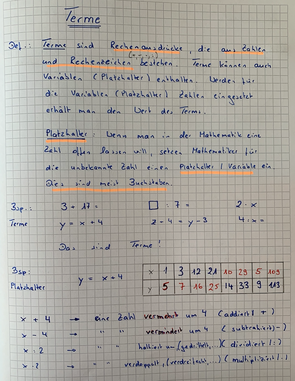 Terme
Def.: Terme sind Rechenausdrücke, die aus Zahlen
(+,-,·,:)
und Rechenzeichen bestehen. Terme können auch
Variablen (Platzhalter) enthalten. Werden für
die Variablen (Platzhalter) Zahlen eingesetzt
erhält man den Wert des Terms.
Platzhalter: Wenn man in der Mathematik eine
Zahl offen lassen will, setzen Mathematiker für
die unbekannte Zahl einen Platzhalter / Variable ein.
Dies sind meist Buchstaben.
Bsp.: 3 + 17 = □ : 7 = 2 · x
Terme y = x + 4 z - 4 = y - 3 4 : x =
Das sind Terme!
Bsp: x 1 3 12 21 10 29 5 109
Platzhalter y = x + 4 y 5 7 16 25 14 33 9 113
x + 4 → eine Zahl vermehrt um 4 (addiert | +)
x - 4 → " " vermindert um 4 (subtrahiert | -)
x : 2 → " " halbiert (dividiert | :)
x · 2 → " " verdoppelt, (verdreifacht, ...) (multipliziert | ·)